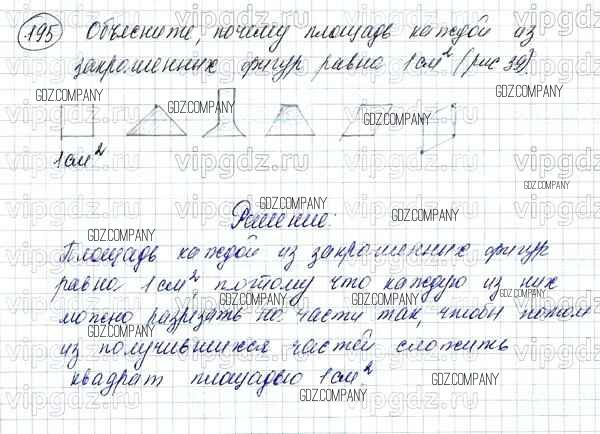 195 Объясните, почему площадь каждой из
закрашенных фигур равна 1 см² (рис 39).
1 см²
Решение:
Площадь каждой из закрашенных фигур
равна 1 см², потому что каждую из них
можно разрезать на части так, чтобы потом
из получившихся частей сложить
квадрат площадью 1 см².
GDZ.COMPANY
vipgdz.ru